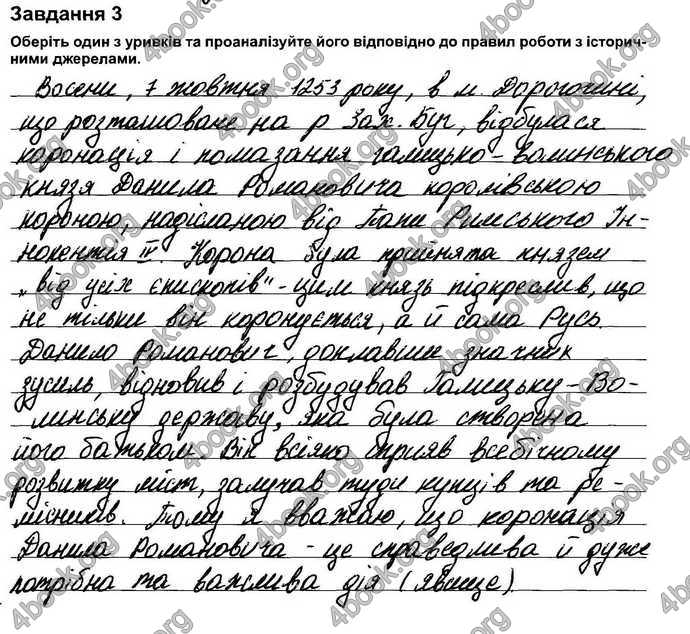 Завдання 3
Оберіть один з уривків та проаналізуйте його відповідно до правил роботи з історич-
ними джерелами.
Восени, 7 жовтня 1253 року, в м. Дорогочині,
що розташоване на р Зах. Буг, відбулася
коронація і помазання галицько-волинського
князя Данила Романовича королівською
короною, надісланою від Папи Римського Ін-
нокентія IV. Корона була прийнята князем
„від усіх єпископів" - цим князь підкреслив, що
не тільки він коронується, а й сама Русь.
Данило Романович, доклавши значних
зусиль, відновив і розбудував Галицьку-Во-
линську державу, яка була створена
його батьком. Він всіляко сприяв всебічному
розвитку міст, залучав туди купців та ре-
місників. Тому я вважаю, що коронація
Данила Романовича - це справедлива й дуже
потрібна та важлива дія (явище).
4book.org